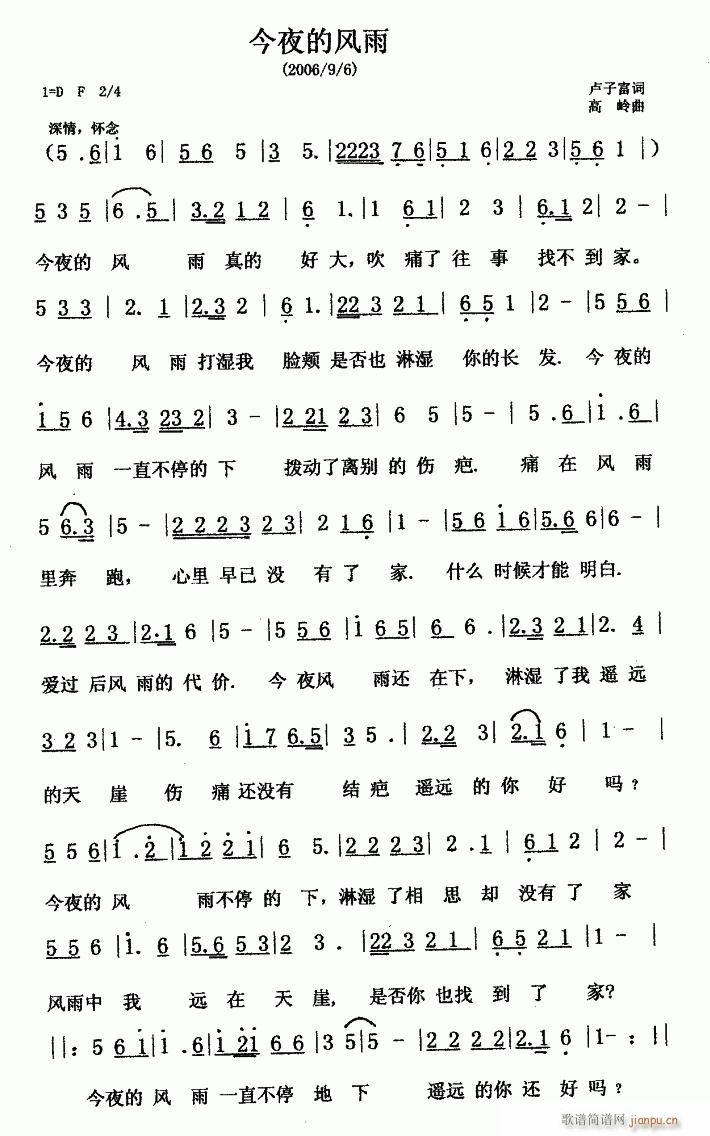 今夜的风雨
(2006/9/6)
1=D F 2/4
卢子富词
高 岭曲
深情，怀念
(5 .6|1 6|5 6 5|3 5.|2223 7 6|5 1 6|2 2 3|5 6 1|)
5 3 5|6 .5|3.2 1 2|6 1.|1 6 1|2 3|6.1 2|2 -|
今夜的 风 雨 真的 好 大，吹 痛了 往 事 找不 到 家。
5 3 3|2. 1|2.3 2|6 1.|2 2 3 2 1|6 5 1|2 -|5 5 6|
今夜的 风 雨 打湿我 脸颊 是否也 淋湿 你的长 发. 今 夜的
1 5 6|4.3 23 2|3 -|2 21 2 3|6 5|5 -|5 .6|1 .6|
风 雨 一直不停的 下 拨动了离别 的 伤 疤. 痛 在 风 雨
5 6.3|5 -|2 2 2 3 2 3|2 1 6|1 -|5 6 1 6|5.6 6|6 -|
里奔 跑， 心里 早已 没 有 了 家. 什么 时候才能 明白.
2.2 2 3|2.1 6|5 -|5 5 6|1 6 5|6 6 .|2.3 2 1|2. 4|
爱过 后风 雨的 代 价. 今 夜风 雨还 在下， 淋湿 了我 遥远
3 2 3|1 -|5. 6|1 7 6.5|3 5 .|2.2 3|2.1 6|1 -|
的天 崖 伤 痛 还没有 结疤 遥远 的 你 好 吗？
5 5 6|1 .2|1 2 2 1|6 5.|2 2 2 3|2 .1|6 1 2|2 -|
今夜的 风 雨不停 的 下，淋湿 了相 思 却 没有 了 家
5 5 6|1. 6|5.6 5 3|2 3 .|22 3 2 1|6 5 2|1 -|
风雨中 我 远 在 天 崖， 是否你 也找 到 了 家？
||: 5 6 1|1 .6|1 21 6 6|3 5|5 -|2 2 2 2|2.1 6|1 - :||
今夜的 风 雨 一直不停 地 下 遥远 的你 还 好吗？
歌谱简谱网
jianpu.cn